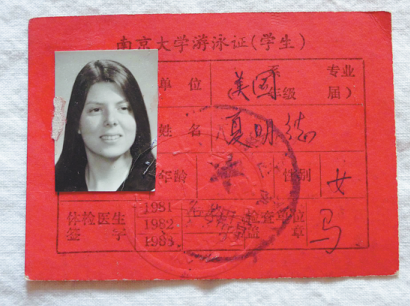 南京大学游泳证(学生)
单位 美國 系 年级 专业 届)
姓名 夏明德
年龄 性别 女
体检医生签字 1981 1982 1983 检查单位盖章 马